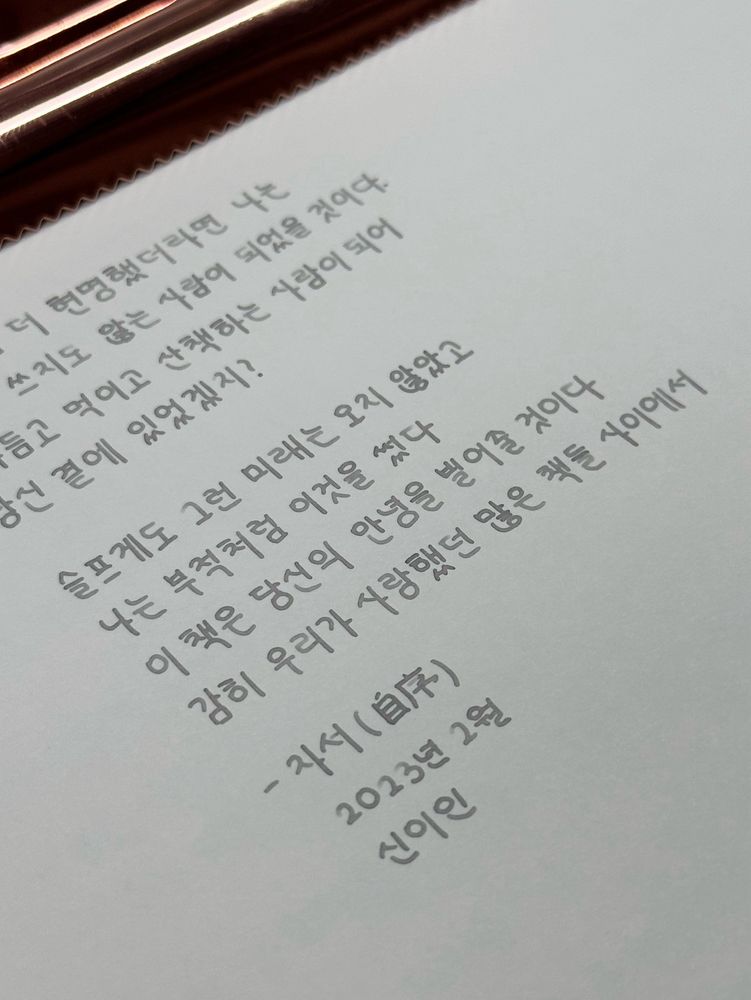 더 현명했더라면 나는
쓰지도 않는 사람이 되었을 것이다.
먹이고 산책하는 사람이 되어
곁에 있었겠지?
슬프게도 그런 미래는 오지 않았고
나는 부적처럼 이것을 썼다
이 책은 당신의 안녕을 빌어줄 것이다
감히 우리가 사랑했던 많은 책들 사이에서
- 자서(自序)
2023년 2월
신이인